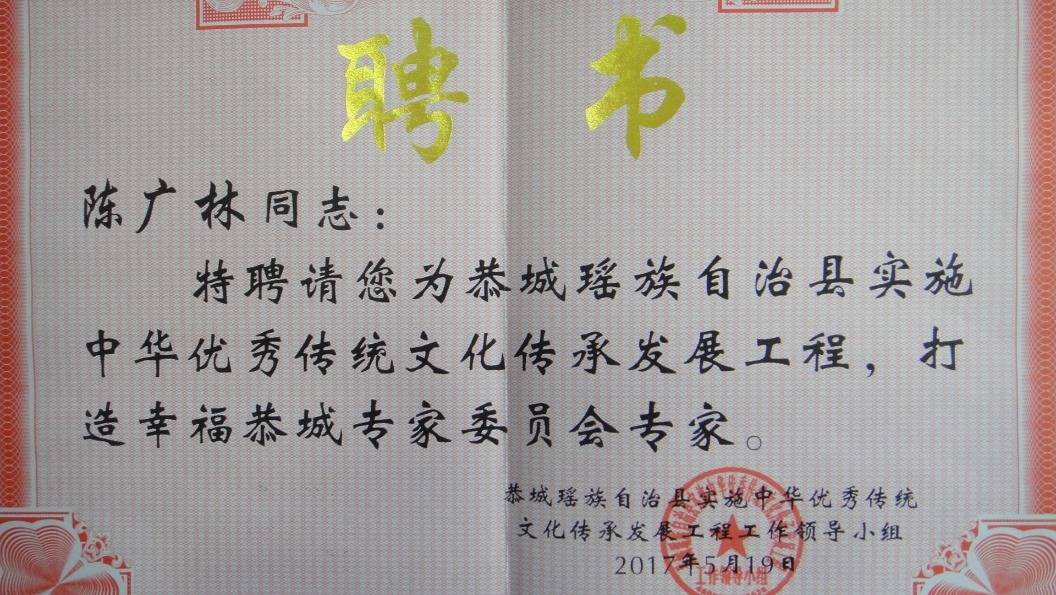 聘书
陈广林同志：
特聘请您为恭城瑶族自治县实施
中华优秀传统文化传承发展工程，打
造幸福恭城专家委员会专家。
恭城瑶族自治县实施中华优秀传统
文化传承发展工程工作领导小组
2017年5月19日
工作领导小组